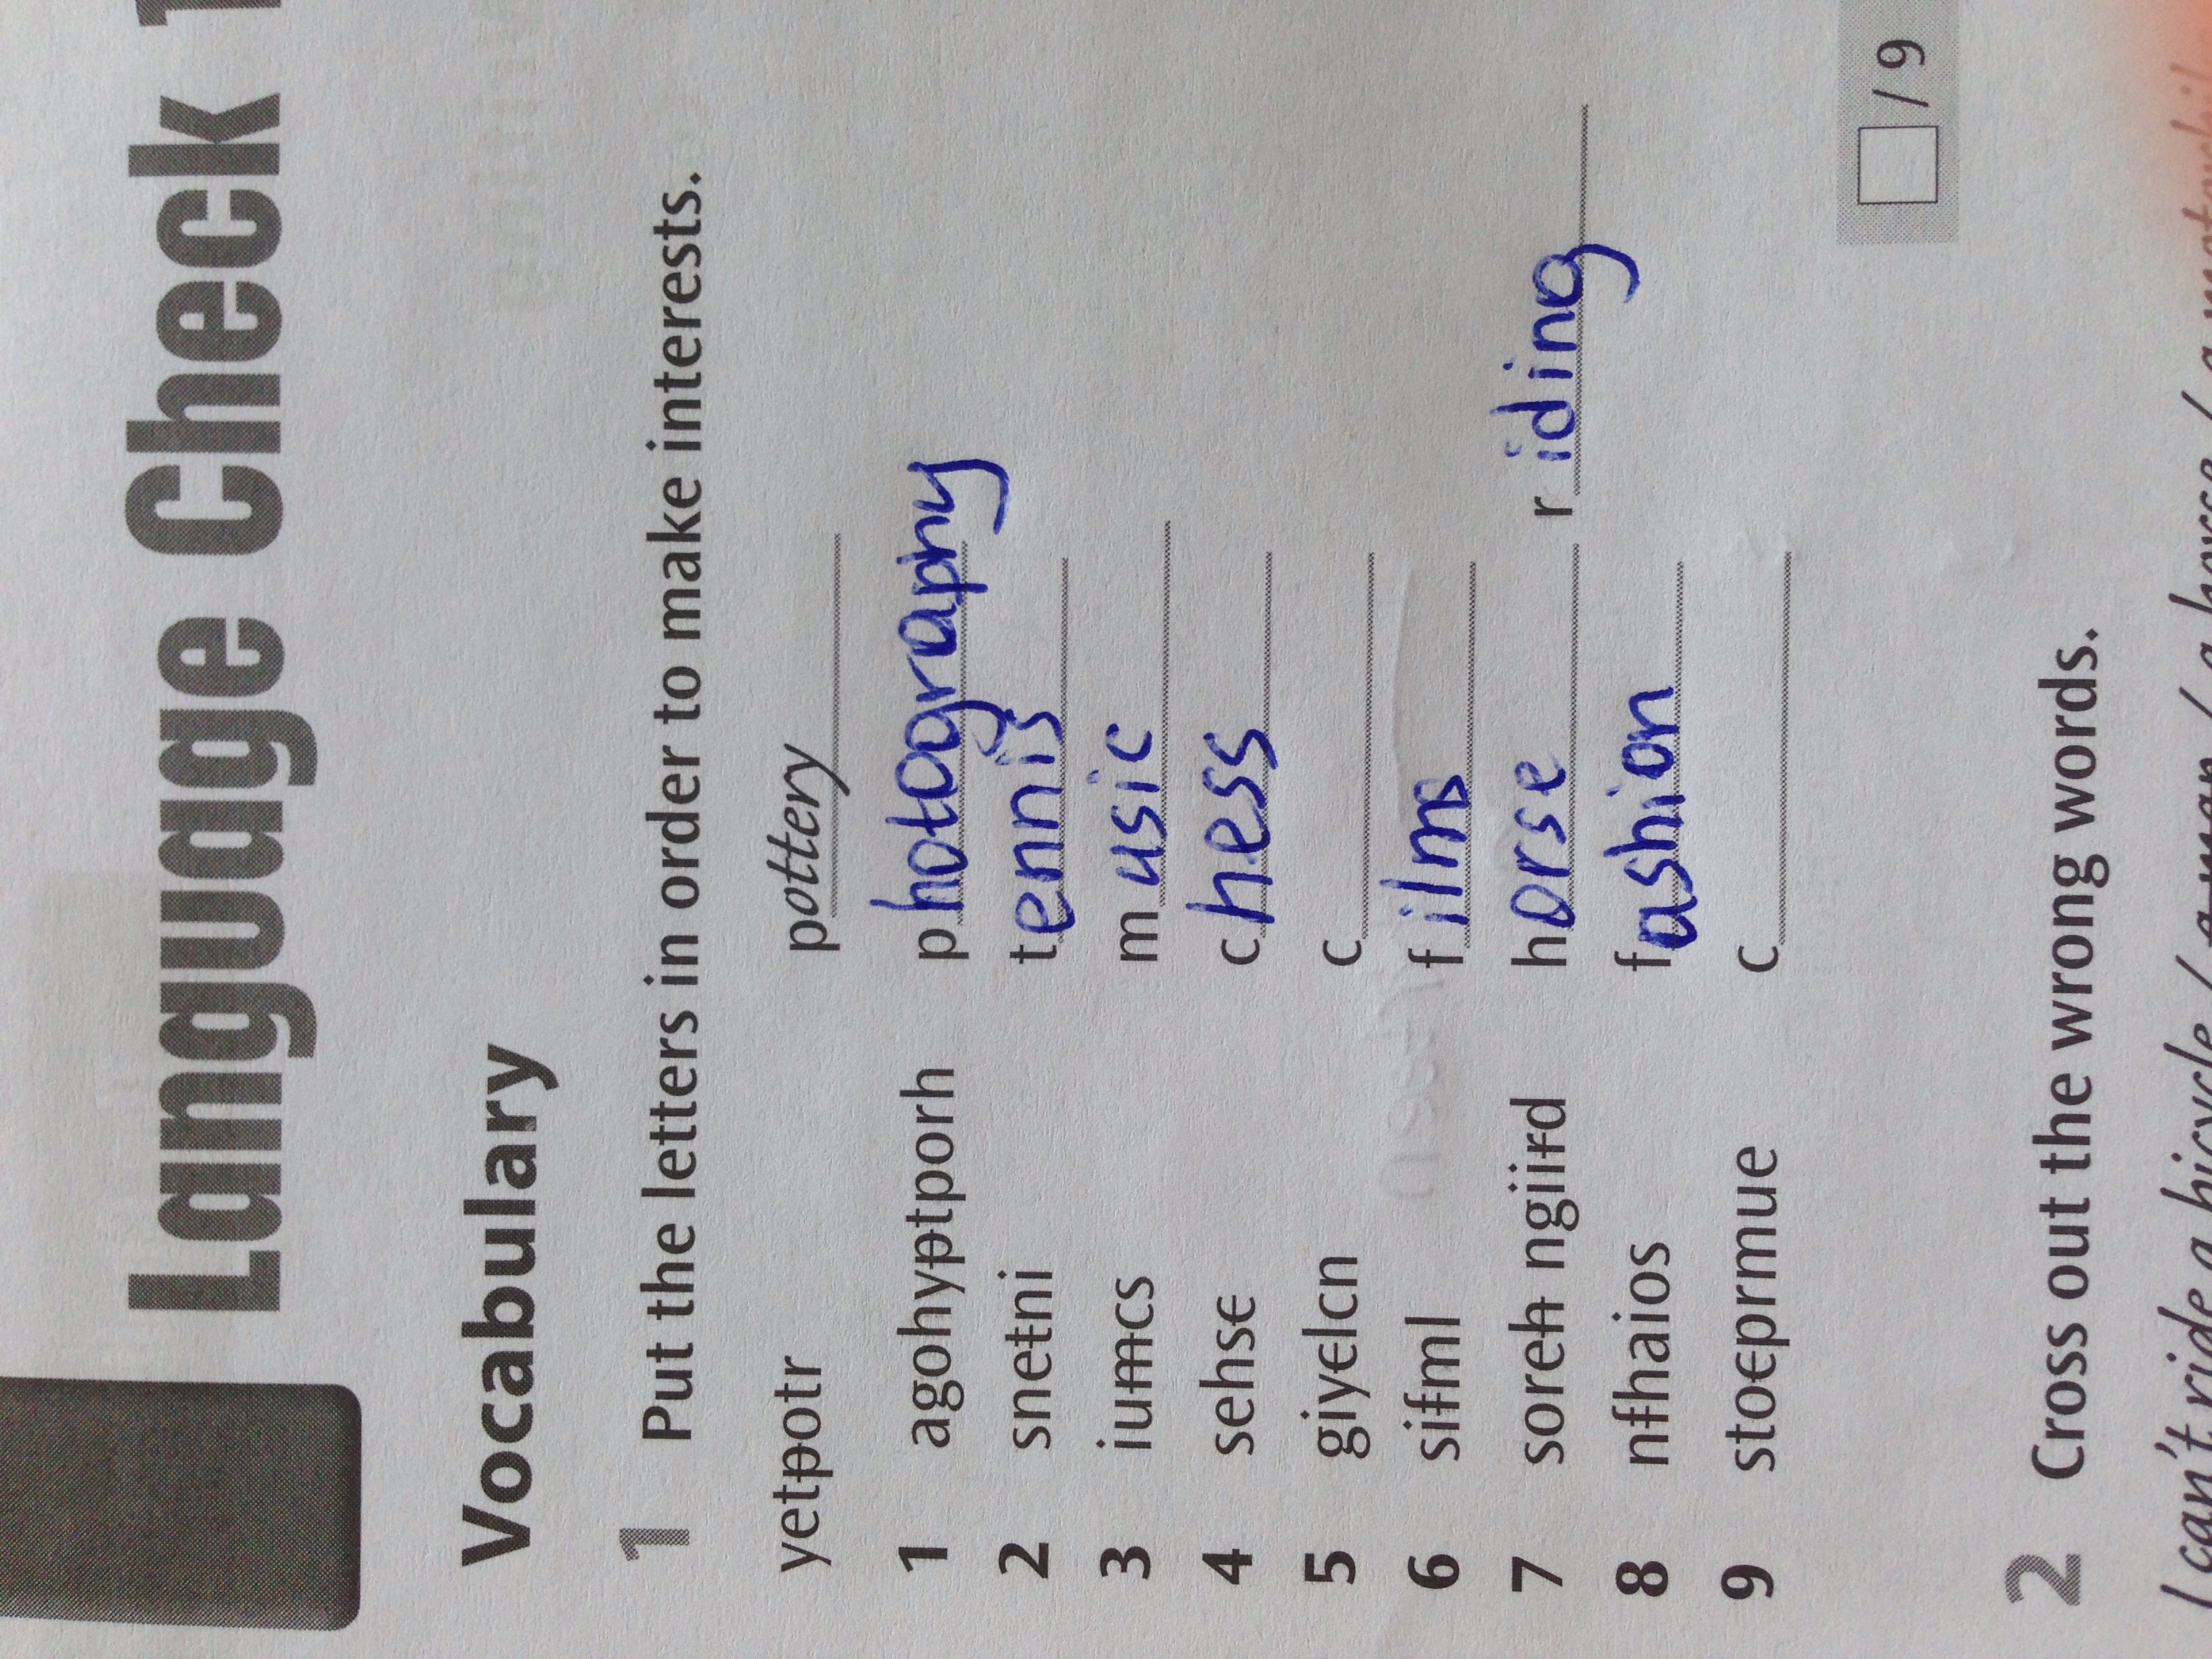 Language Check 1
Vocabulary
1 Put the letters in order to make interests.
yetpotr pottery
1 agohyptporh photography
2 snetni tennis
3 iumcs music
4 sehsc chess
5 giyclcn c
6 sifml films
7 soreh ngiird horse riding
8 nfhaios fashion
9 stocprmue c
/ 9
2 Cross out the wrong words.
I can't ride a bicycle / a man / a horse / a motorbike